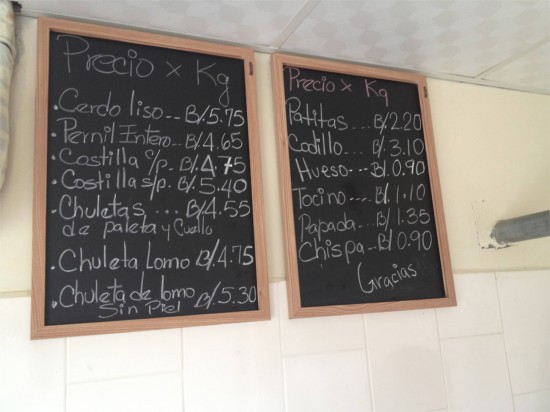 Precio x Kg
• Cerdo liso -- B/. 5.75
• Pernil Entero -- B/. 4.65
• Costilla c/p. B/. 4.75
• Costilla s/p. B/. 5.40
• Chuletas --- B/. 4.55
de paleta y Cuello
• Chuleta Lomo B/. 4.75
• Chuleta de lomo B/. 5.30
Sin Piel
Precio x Kg
Patitas .... B/. 2.20
Codillo .. B/. 3.10
Hueso --- B/. 0.90
Tocino ... B/. 1.10
Papada .. B/. 1.35
Chispa -- B/. 0.90
Gracias!!